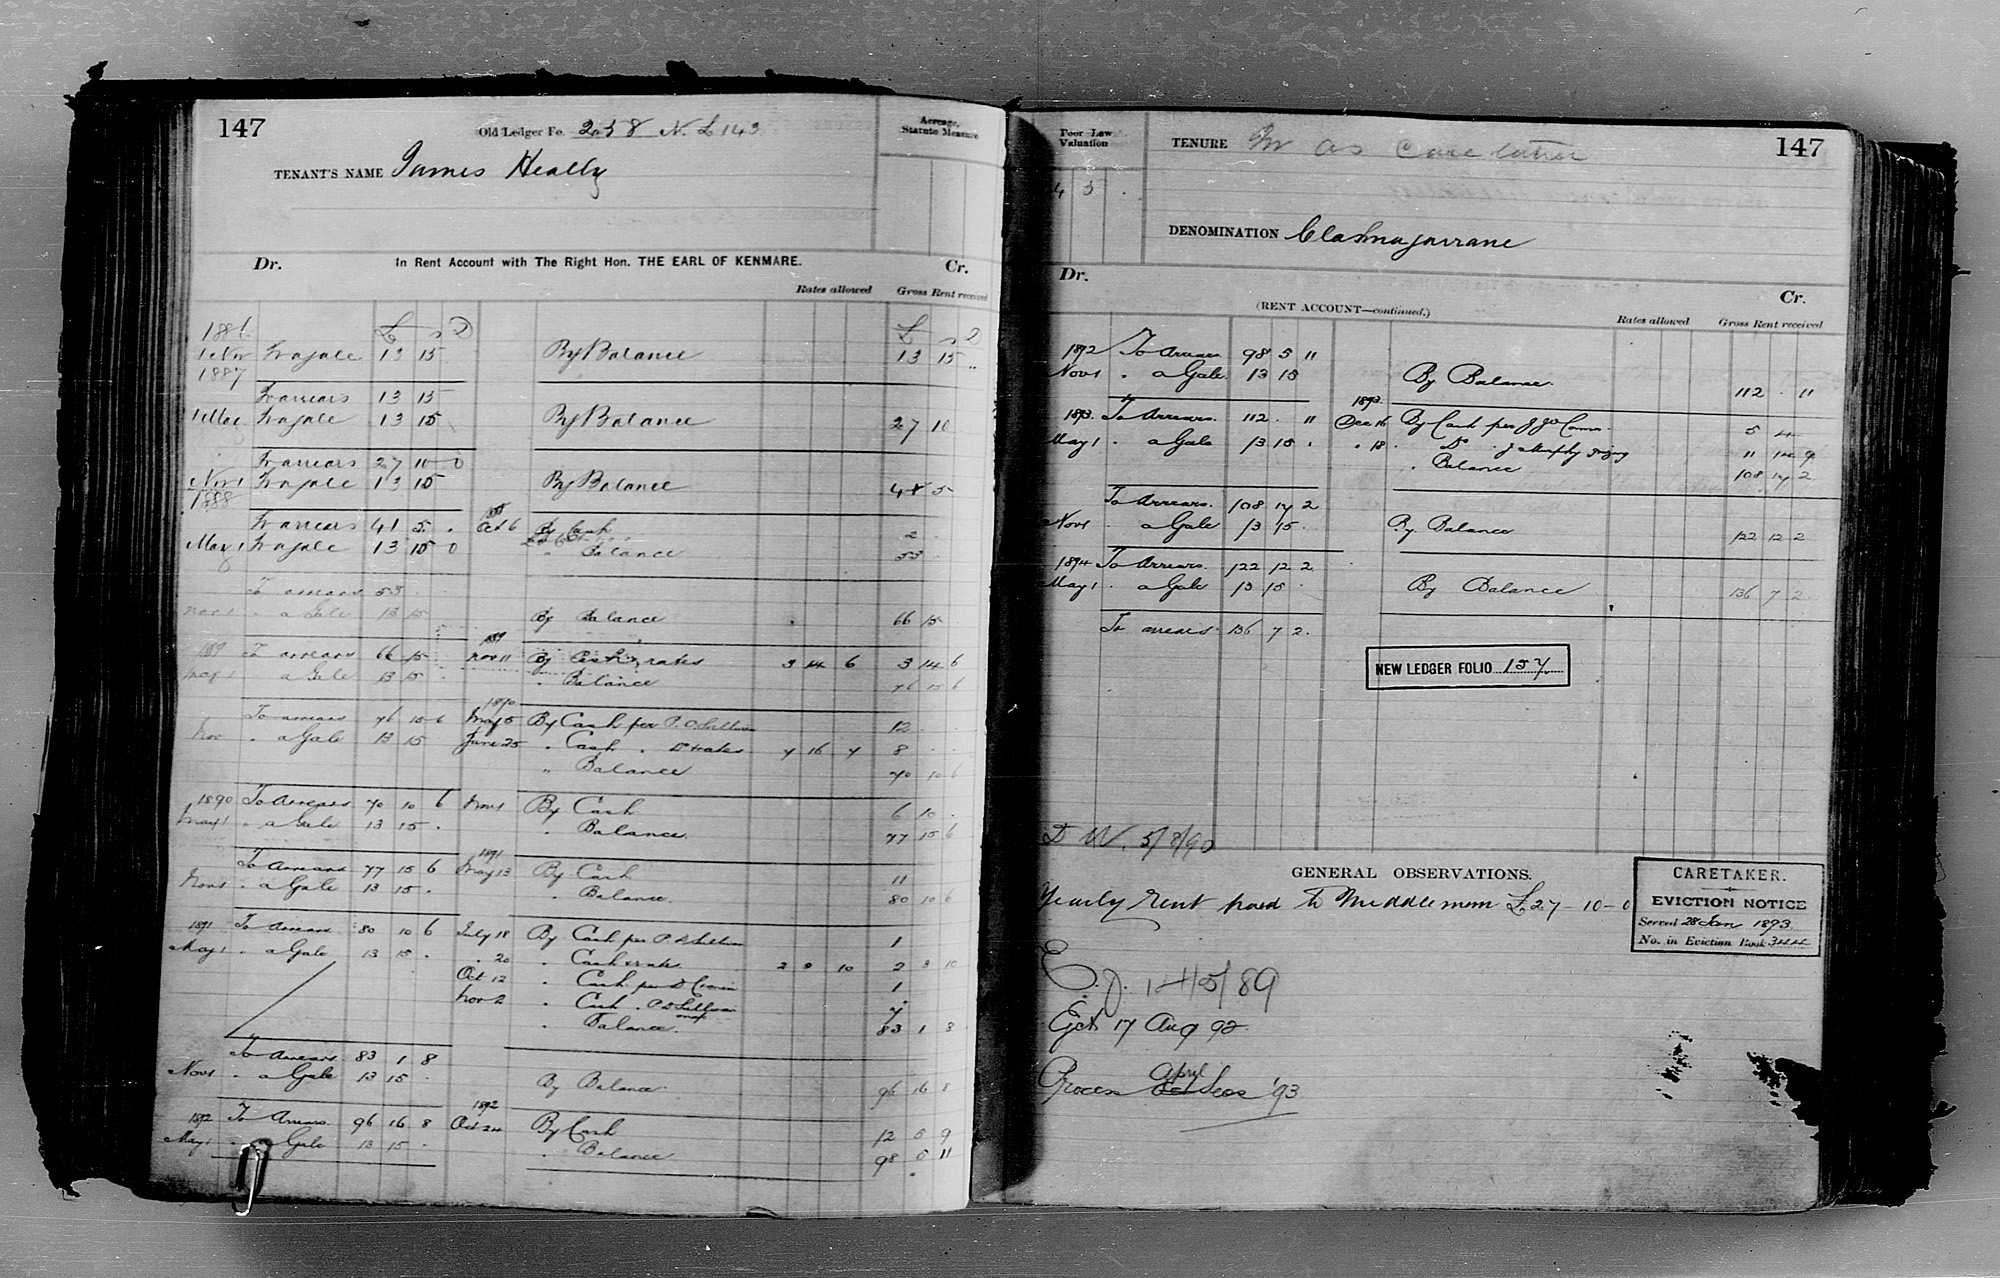 147
Old Ledger Fo. 258 N. L 143
Acreage, Statute Measure
TENANT'S NAME James Healy
Dr. In Rent Account with The Right Hon. THE EARL OF KENMARE. Cr.
Rates allowed Gross Rent received
1886 £ s D £ s D
1 Nov To a gale 13 15 By Balance 13 15 "
1887
To arrears 13 15
1 May To a gale 13 15 By Balance 27 10
To arrears 27 10 0
Nov 1 To a gale 13 15 By Balance 41 5
1888
To arrears 41 5 . Oct 6 By Cash 2 .
May 1 To a gale 13 15 0 " Balance 53
To arrears 53
Nov 1 " a Gale 13 15 By Balance 66 15
1889 To arrears 66 15 1889 Nov 11 By Cash & rates 3 14 6 3 14 6
May 1 a Gale 13 15 " Balance 76 15 6
1890
To arrears 76 15 6 May 5 By Cash per P. O'Sullivan 12
Nov " a Gale 13 15 June 25 " Cash " Do & rates 4 16 4 8
" Balance 70 10 6
1890 To Arrears 70 10 6 Nov 1 By Cash 6 10 .
May 1 " a Gale 13 15 . " Balance 77 15 6
1891
To Arrears 77 15 6 May 13 By Cash 11
Nov 1 " a Gale 13 15 . " Balance 80 10 6
1891 To Arrears 80 10 6 July 18 By Cash per P. O'Sullivan 1
May 1 " a Gale 13 15 . " 20 " Cash & rates 2 3 10 2 3 10
Oct 12 " Cash per D Cronin 1
Nov 2 " Cash " P O'Sullivan 7
" Balance 83 1 8
To Arrears 83 1 8
Nov 1 " a Gale 13 15 . By Balance 96 16 8
1892
1892 To Arrears 96 16 8 Oct 24 By Cash 12 5 9
May 1 " a Gale 13 15 . " Balance 98 5 11
Poor Law Valuation
4 5 .
TENURE as Caretaker
147
DENOMINATION Clashnagarrane
Dr. Cr.
(RENT ACCOUNT—continued.)
Rates allowed Gross Rent received
1892 To Arrears 98 5 11
Nov 1 " a Gale 13 15 By Balance 112 . 11
1893
1893 To Arrears 112 . 11 Dec 16 By Cash per J JO'Connor 5 4
May 1 " a Gale 13 15 . " 18 " Do " J Murphy 11 14 9
" Balance 108 17 2
To Arrears 108 17 2
Nov 1 " a Gale 13 15 . By Balance 122 12 2
1894 To Arrears 122 12 2
May 1 " a Gale 13 15 . By Balance 136 7 2
To arrears 136 7 2
NEW LEDGER FOLIO 157
D W. 5/8/90
GENERAL OBSERVATIONS.
Yearly rent paid to Middleman £27-10-0
CARETAKER.
EVICTION NOTICE
Served 28 Jan 1893.
No. in Eviction Book 344
E. J. 14/5/89
Eject 17 Aug 92
April
Process Sess '93